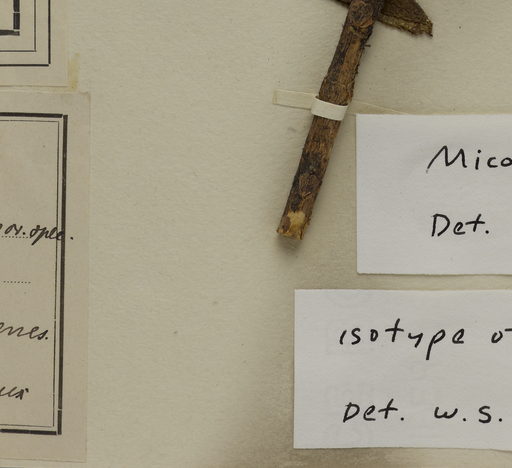 nov. spec.
Mico
Det.
isotype o
Det. W. S.